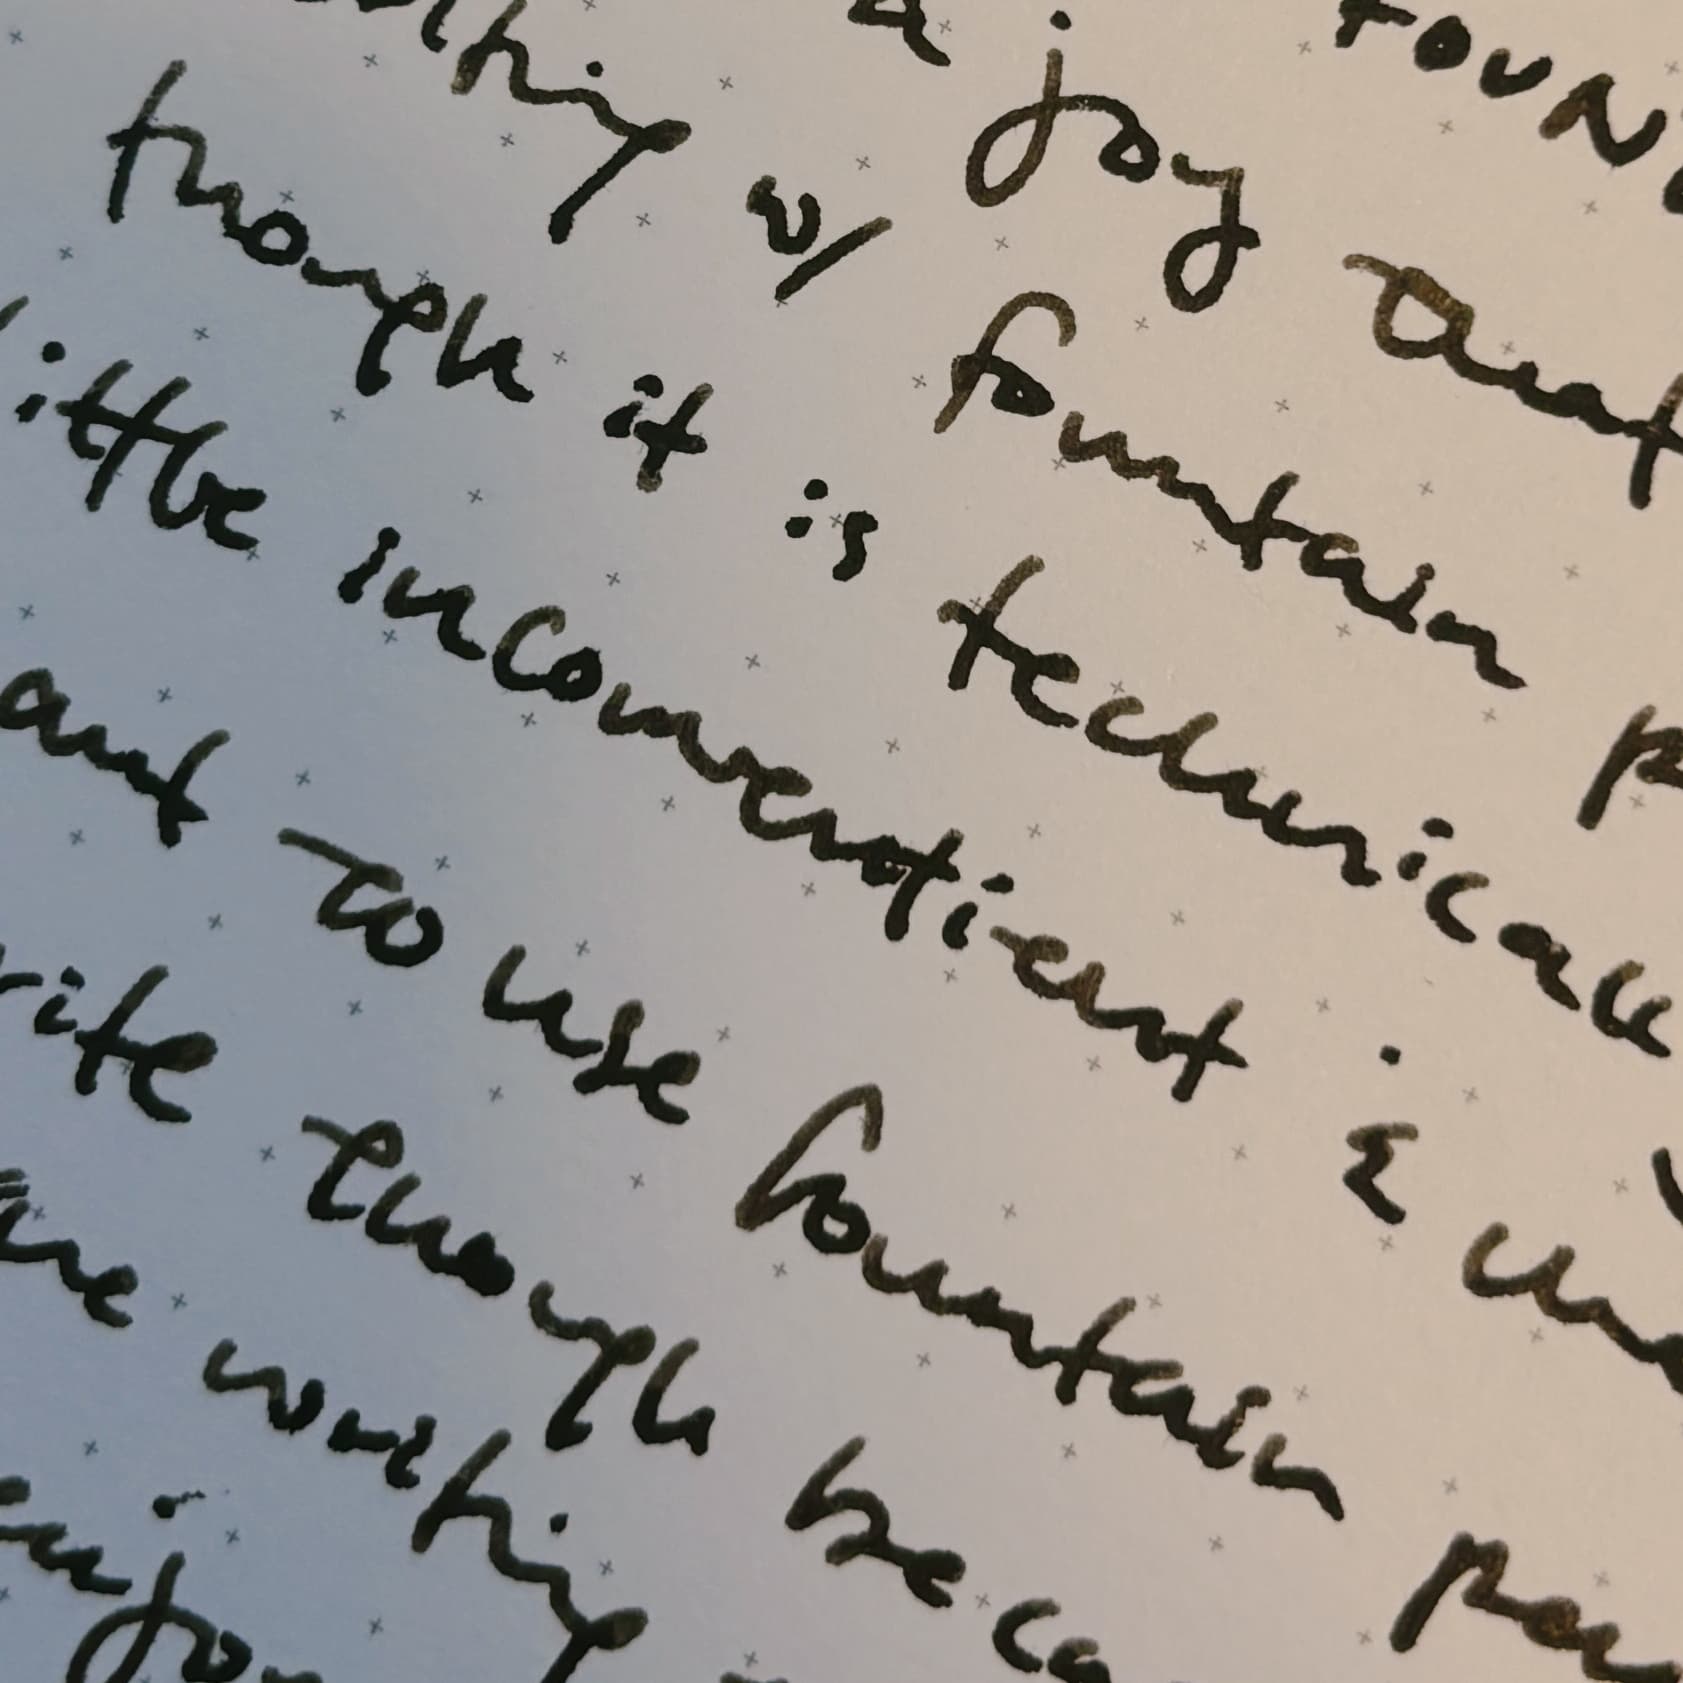 FOUN
a joy that
king w/ fountain p
though it is technicall
little inconventient & un
ant to use fountain pen
rite though beca
are working
enjoy